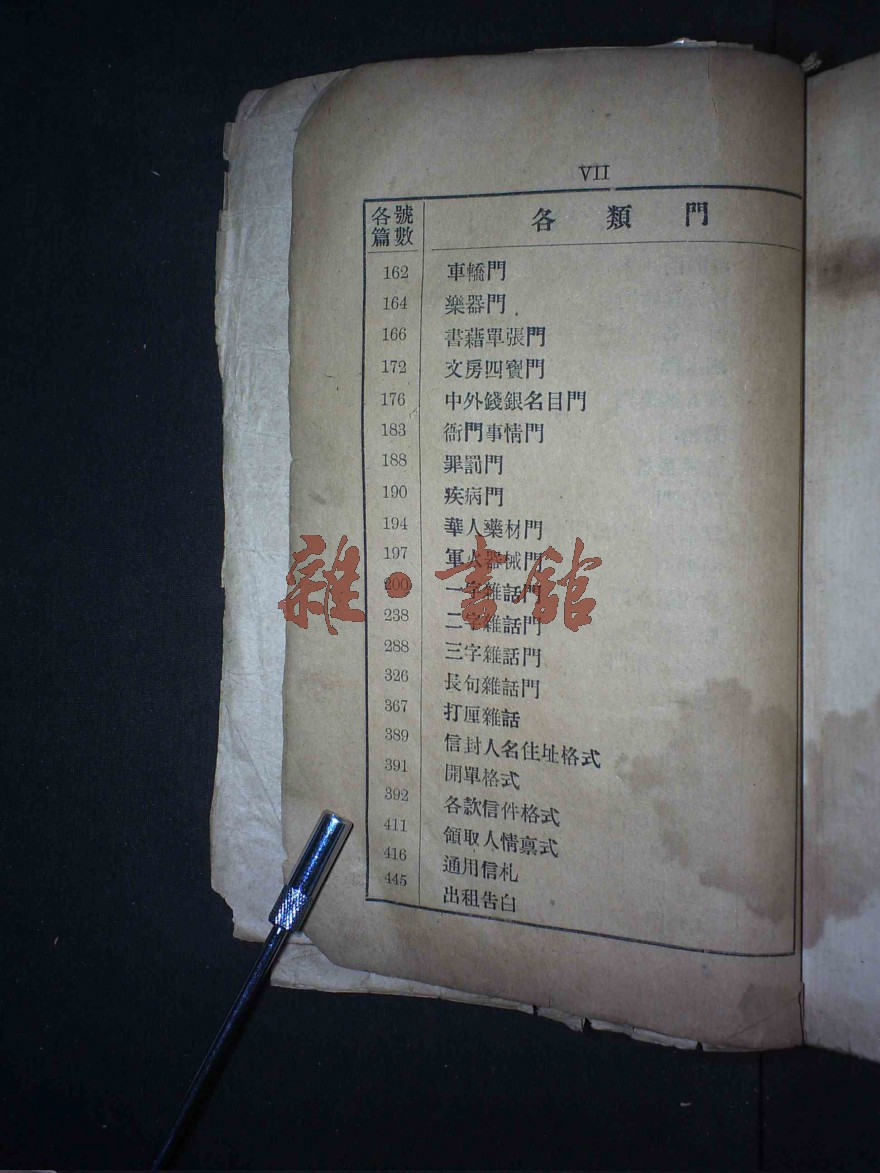 VII
各號
篇數
各類門
162 車轎門
164 樂器門
166 書藉單張門
172 文房四寶門
176 中外錢銀名目門
183 衙門事情門
188 罪罰門
190 疾病門
194 華人藥材門
197 軍火器械門
200 一字雜話門
238 二字雜話門
288 三字雜話門
326 長句雜話門
367 打厘雜話
389 信封人名住址格式
391 開單格式
392 各款信件格式
411 領取人情禀式
416 通用信札
445 出租告白
雜·書舘